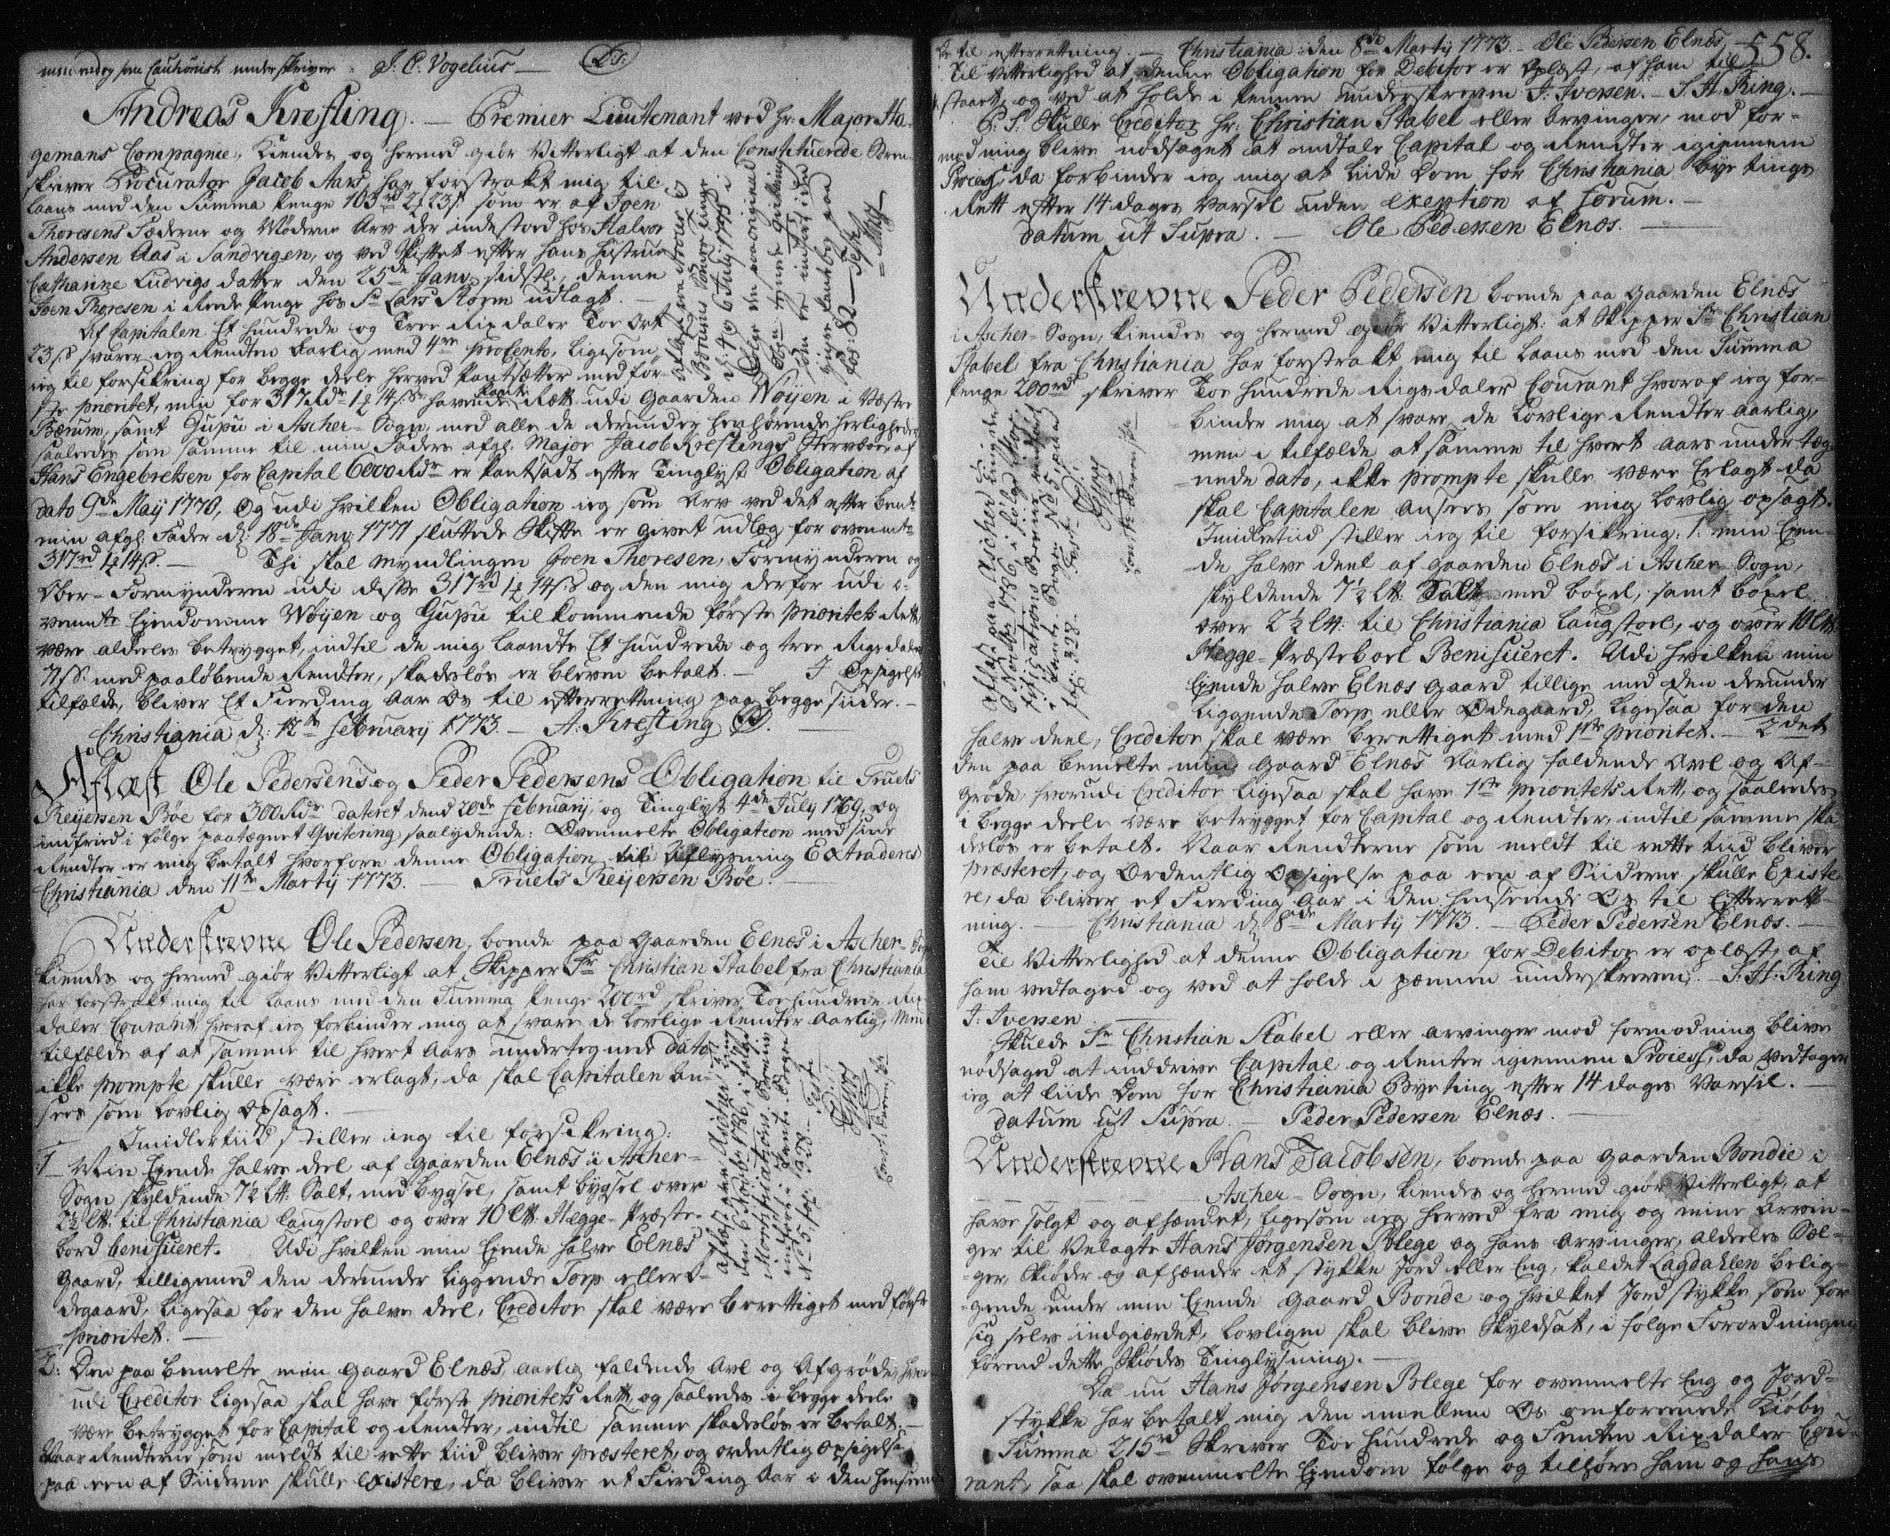 men endog som Cautionist underskriver. J. C. Vogelius — L.S.
Andreas Kresling. — Premier Lieutenant ved hr. Major Ha-
gemans Compagnie, Kiendes og hermed giør Vitterligt at den Constituerede Soren-
skriver Procurator Jacob Aars har forstrakt mig til
Laans med den Summa Penge 103rd 2 23s som er af Joen
Thoresens Fæderne og Møderne Arv der indestod hos Halvor
Andersen Aas i Sandvigen, og ved Skiftet efter hans Hustrue
Catharine Ludvigs datter den 25de Janv sidstl. denne
Joen Thoresen i Rede Penge hos Sr Lars Storm udlagt. —
Af Capitalen Et hundrede og Tree Rixdaler Toe Ort
23s svarer ieg Renten Aarlig med 4re ProCento, ligesom
ieg til forsikring for begge deele herved Pantsætter med før-
ste prioritet, min for 317Rdr 1 14s havende Pante Rætt udi Gaarden Nøyen i Væstre
Bærum, samt Gupu i Ascher-Sogn, med alle de derunder henhørende herligheder
saaledes som samme til min Faders afgl. Major Jacob Kreslings Sterboe af
Hans Engebretsen for Capital 6000 Rdr er Pantsadt efter Tinglyst Obligation af
dato 9de May 1770, Og udi hvilken Obligation ieg som Arv ved det efter bemte
min afgl. Fader d: 18de Janv 1771 sluttede Skifte er givet udlæg for ovenmte
317rd 1 14s. — Thi skal Myndlingen Joen Thoresen, Formynderen og
Ober-Formynderen udi disse 317rd 1 14s og den mig derfor udi o-
venmte Eiendomme Nøyen og Gupu tilkommende første prioritets Rett
være aldeles betrygget, indtil de mig laante Et hundrede og tree Rigsdaler
med paaløbende Rendter, skadesløs er bleven betalt. — I Opsigelses
tilfælde, bliver Et Fierding Aar Os til efterretning paa begge siider. —
Christiania d: 12te February 1773. — A. Kresling L.S.
Aflæst Ole Pedersens og Peder Pedersens Obligation til Truels
Reijersen Bøe for 300 Rdr dateret dend 20de February, og Tinglyst 4de July 1769, og
indfried i følge paategnet Qvitering saalydende: Ovenmelte Obligation med sine
Rendter er mig betalt hvorfore denne Obligation til Aflysning Extraderes
Christiania den 11te Marty 1773. — Truels Reijersen Bøe. —
Underskrevne Ole Pedersen, boende paa Gaarden Elnæs i Ascher-Sogn
kiendes og hermed giør Vitterligt at Skipper Sr Christian Stabel fra Christiania
har forstrakt mig til Laans med den Summa Penge 200rd skriver Toe hundrede Rix-
daler Courant, hvoraf ieg forbinder mig at svare de Lovlige Rendter Aarlig, Men i
tilfælde af at samme til hvert Aars undertegnede dato
ikke prompte skulle være erlagt, da skal Capitalen an-
sees som Lovlig opsagt. —
Imidlertiid stiller ieg til forsikring:
1 Min Eiende halve deel af Gaarden Elnæs i Ascher-
Sogn skyldende 7½ Lt: Salt, med bygsel, samt bygsel over
2½ Lt. til Christiania Laugstoel og over 10 Lt. Hegge-Præste-
bord benificeret. Udi hvilken min Eiende halve Elnæs
Gaard, tilligemed den derunder liggende Torp eller Ø-
degaard, ligesaa for den halve deel, Creditor skal være berettiget med første
prioritet. —
2: Den paa bemelte min Gaard Elnæs, aarlig faldende Avl og Afgrøde, hvor
udi Creditor ligesaa skal have første prioritets Rett, og saaledes i begge deele
være betrygget for Capital og Rendter, indtil samme skadesløs er betalt. —
Naar Rendterne som meldt til rette tiid bliver præsteret, og ordentlig opsigelse
paa een af Siiderne skulle existere, da bliver et Fierding Aar i den henseende
Aflæst paa Ascher Ting
den 6 Nov: 1786 i følge
Mortifications Bevis
indført i Pante-Boge
No 5 fol. 328. — Test:
558.
Os til efterretning. — Christiania den 8de Marty 1773. — Ole Pedersen Elnæs
Til Vitterlighed at denne Obligation for Debitor er oplæst, af ham til-
staaet, og ved at holde i Pennen underskreven J: Iversen. — S. H. Ring. —
P: S: Skulle Creditor hr: Christian Stabel eller Arvinger, mod for-
modning blive nødsaget at indtale Capital og Rendter igiennem
Process, da forbinder ieg mig at liide Dom for Christiania bye tings
Rett efter 14 dages Varsel uden exeption af Forum. —
datum ut Supra. — Ole Pedersen Elnæs. —
Underskrevne Peder Pedersen boende paa Gaarden Elnæs
i Ascher-Sogn, kiendes og hermed giør Vitterligt: at Skipper Sr Christian
Stabel fra Christiania har forstrakt mig til Laans med den Summa
Penge 200rd skriver Toe hundrede Rigsdaler Courant hvoraf ieg for-
binder mig at svare de Lovlige Rendter aarlig,
men i tilfælde at samme til hvert aars underteg-
nede dato, ikke prompte skulle være Erlagt da
skal Capitalen ansees som mig Lovlig opsagt.
Imidlertiid stiller ieg til forsikring: 1: min Eien-
de halve deel af Gaarden Elnæs i Ascher Sogn,
skyldende 7½ Lt: Salt med bøxel, samt bøxel
over 2½ Lt: til Christiania Laugstoel, og over 10 Lt:
Hegge-Præsteboel Benificeret. Udi hvilken min
Eiende halve Elnæs Gaard tillige med den derunder
liggende Torp eller Ødegaard, ligesaa for den
halve deel, Creditor skal være berettiget med 1ste prioritet. — 2det
den paa bemelte min Gaard Elnæs Aarlig faldende Avl og Af-
grøde, hvorudi Creditor ligesaa skal have 1ste prioritets Rett, og saaledes
i begge deele være betrygget for Capital og Rendter, indtil samme ska-
desløs er betalt. Naar Rendterne som meldt til rette tiid bliver
præsteret, og Ordentlig Opsigelse paa een af Siiderne skulle Existe-
re, da bliver et Fierding Aar i den henseende Os til Efterrett-
ning. — Christiania d: 8de Marty 1773. — Peder Pedersen Elnæs. —
Til Vitterlighed at denne Obligation for Debitor er oplæst, af
ham vedtaged og ved at holde i pennen underskreven. — S. H. Ring
J: Iversen —
Skulde Sr Christian Stabel eller arvinger mod formodning blive
nødsaged at inddrive Capital og Renter igiennem Process, da vedtager
ieg at liide Dom for Christiania Bye ting efter 14 dages Varsel. —
datum ut Supra — Peder Pedersen Elnæs. —
Underskrevne Hans Jacobsen, boende paa Gaarden Bondie i
Ascher-Sogn, kiendes og hermed giør Vitterligt, at
have solgt og afhændet, ligesom ieg herved fra mig og mine Arvin-
ger til Velagte Hans Jørgensen Blege og hans Arvinger, aldeles Sæl-
ger, Skiøder og afhænder et stykke Jord eller Eng, kaldet Lagdahlen belig-
gende under min Eiende Gaard Bonde og hvilket Jordstykke som for
sig selv indgiærdet, Lovligen skal blive Skyldsat, i følge Forordningen
førend dette Skiødes Tinglysning. —
Da nu Hans Jørgensen Blege for ovenmelte Eng og Jord-
stykke har betalt mig den imellem Os omforenede Kiøbe
Summa 215rd Skriver Toe hundrede og Femten Rixdaler Cou-
rant, saa skal ovenmelte Eiendom følge og tilhøre ham og hans